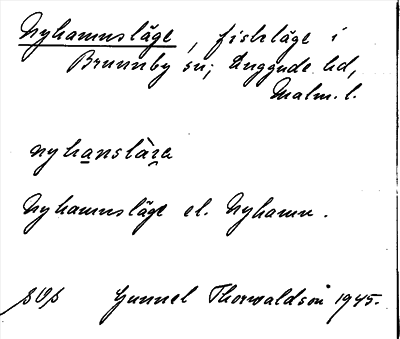 Nyhamnsläge, fiskläge i
Brunnby sn; Luggude hd,
Malm. l.
nyhanslära
Nyhamnsläge el. Nyhamn.
Gunnel Thorwaldson 1945.